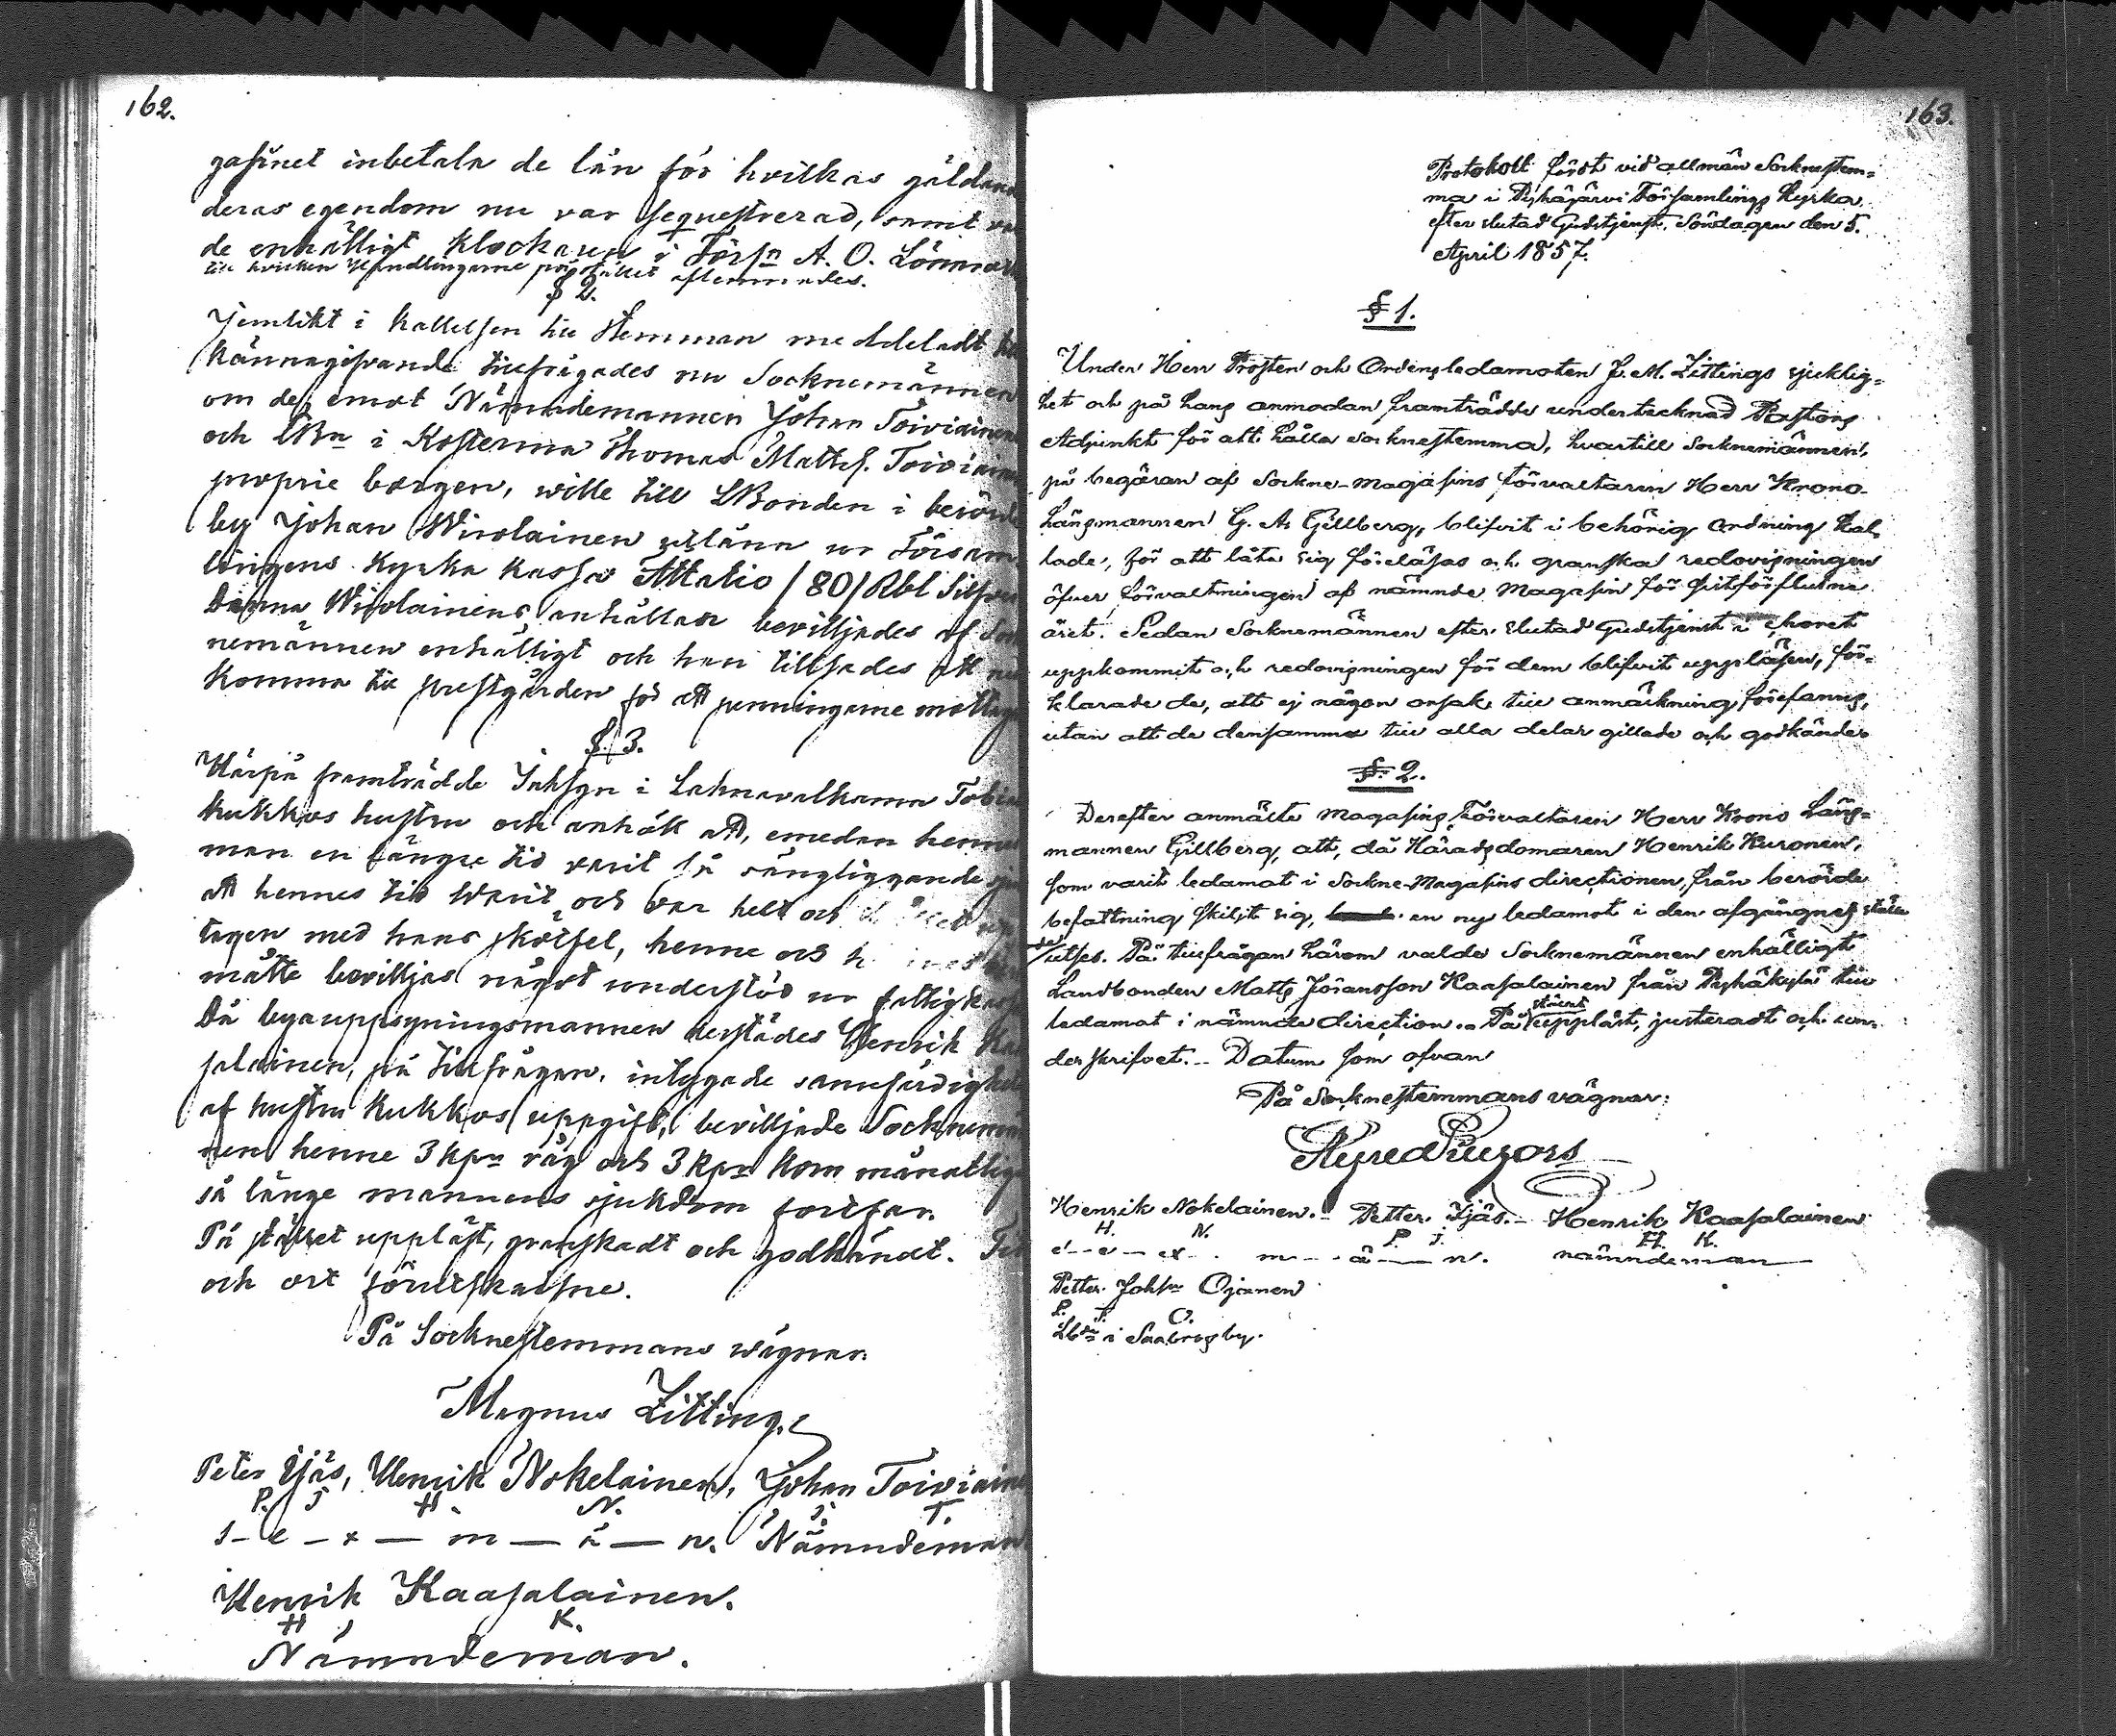 162.
gasinet inbetala de lån för hvilkas gäldan
deras egendom nu var sequestrerad, samt
de enhälligt klockaren i Förs:n A. O. Lönnmark
till hvilken Handlingarne på stället aflemnades.
§ 2.
Jemlikt i kallelsen till Stemman meddeladt
kännagifvande tillfrågades nu Socknemännen
om de, emot Nämndemannen Johan Toiviainen
och LBn i Kosterma Thomas Matts. Toiviainens
proprie borgen, wille till LBonden i berörde
by Johan Wirolainen utlåna ur Församlingens
lingens Kyrka kassa Attatio /80/ Rbl Silfver
Denna Wirolainens anhållan beviljades af Sock
nemännen enhälligt och han tillsades att
komma till prestgården för att penningarne mottaga
§. 3.
Härpå framträdde Inhsgn i Lahnavalkama Tobias
Kukkos hustru och anhöll att, emedan hennes
man en längre tid varit så sängliggande sjuk
att hennes tid warit och var helt och
tagen med hans skötsel, henne och h
måtte beviljas något understöd ur fattigkassan
Då byauppsyningsmannen derstädes Henrik Kaa
salainen, på tillfrågan, intygade sannfärdigheten
af hustru Kukkos uppgift, beviljade Socknemän
nen henne 3 kpr råg och 3 kpr korn månatligen
så länge mannens sjukdom fortfar.
På stället uppläst, granskadt och godkändt. Tid
och ort förutskrifne.
På Socknestemmans wägnar:
Magnus Zitting.
Peter Ijäs, Henrik Nokelainen, Johan Toiviainen
P. J. H. N. J. T.
s - e - x - m - ä - n. Nämndeman
Henrik Kaasalainen.
H K.
Nämndeman.
163.
Protokoll fördt vid allmän Socknestem=
ma i Pyhäjärvi Församlings Kyrka
efter slutad Gudstjenst, Söndagen den 5.
April 1857.
§ 1.
Under Herr Prosten och Ordensledamoten J. M. Zittings sjuklig=
het och på hans anmodan framträdde undertecknad Pastors
Adjunkt för att hålla socknestemma, hvartill socknemännen,
på begäran af Sockne-magasins Förvaltaren Herr Krono-
Länsmannen G. A. Gillberg, blifvit i behörig ordning kal
lade, för att låta sig föreläsas och granska redovisningen
öfver förvaltningen af nämnde magasin för sistförflutna
året. Sedan Socknemännen efter slutad Gudstjenst i choret
uppkommit och redovisningen för dem blifvit uppläsen, för=
klarade de, att ej någon orsak till anmärkning förefanns,
utan att de densamma till alla delar gillade och godkände.
§. 2.
Derefter anmälte magasins Förvaltaren Herr Krono Läns=
mannen Gillberg, att, då Häradsdomaren Henrik Kuronen,
som varit ledamot i Sockne-Magasins directionen, från berörde
befattning skiljt sig, en ny ledamot i den afgångnes ställe
utses. På tillfrågan härom valde Socknemännen enhälligt
Landbonden Matts Jöransson Kaasalainen från Pyhäkylä till
ledamot i nämnde direction. - På stället uppläst, justeradt och un-
derskrifvet. - Datum som ofvan
På Socknestemmans vägnar:
Henrik Nokelainen. - Petter Ijäs. - Henrik Kaasalainen
H. N. P. J. H. K.
s - e - x - m - ä - n. nämndeman
Petter Johsn Ojanen
P. J. O.
Lbdn i Saabros by.